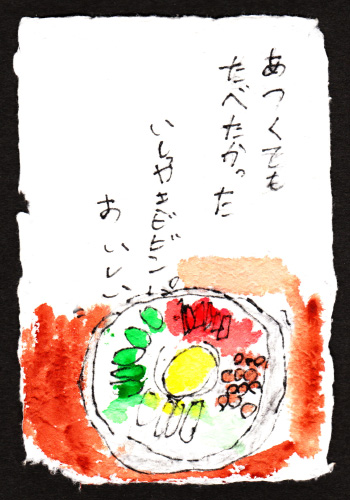 あつくても
たべたかった
いしやきビビンパ
おいしい